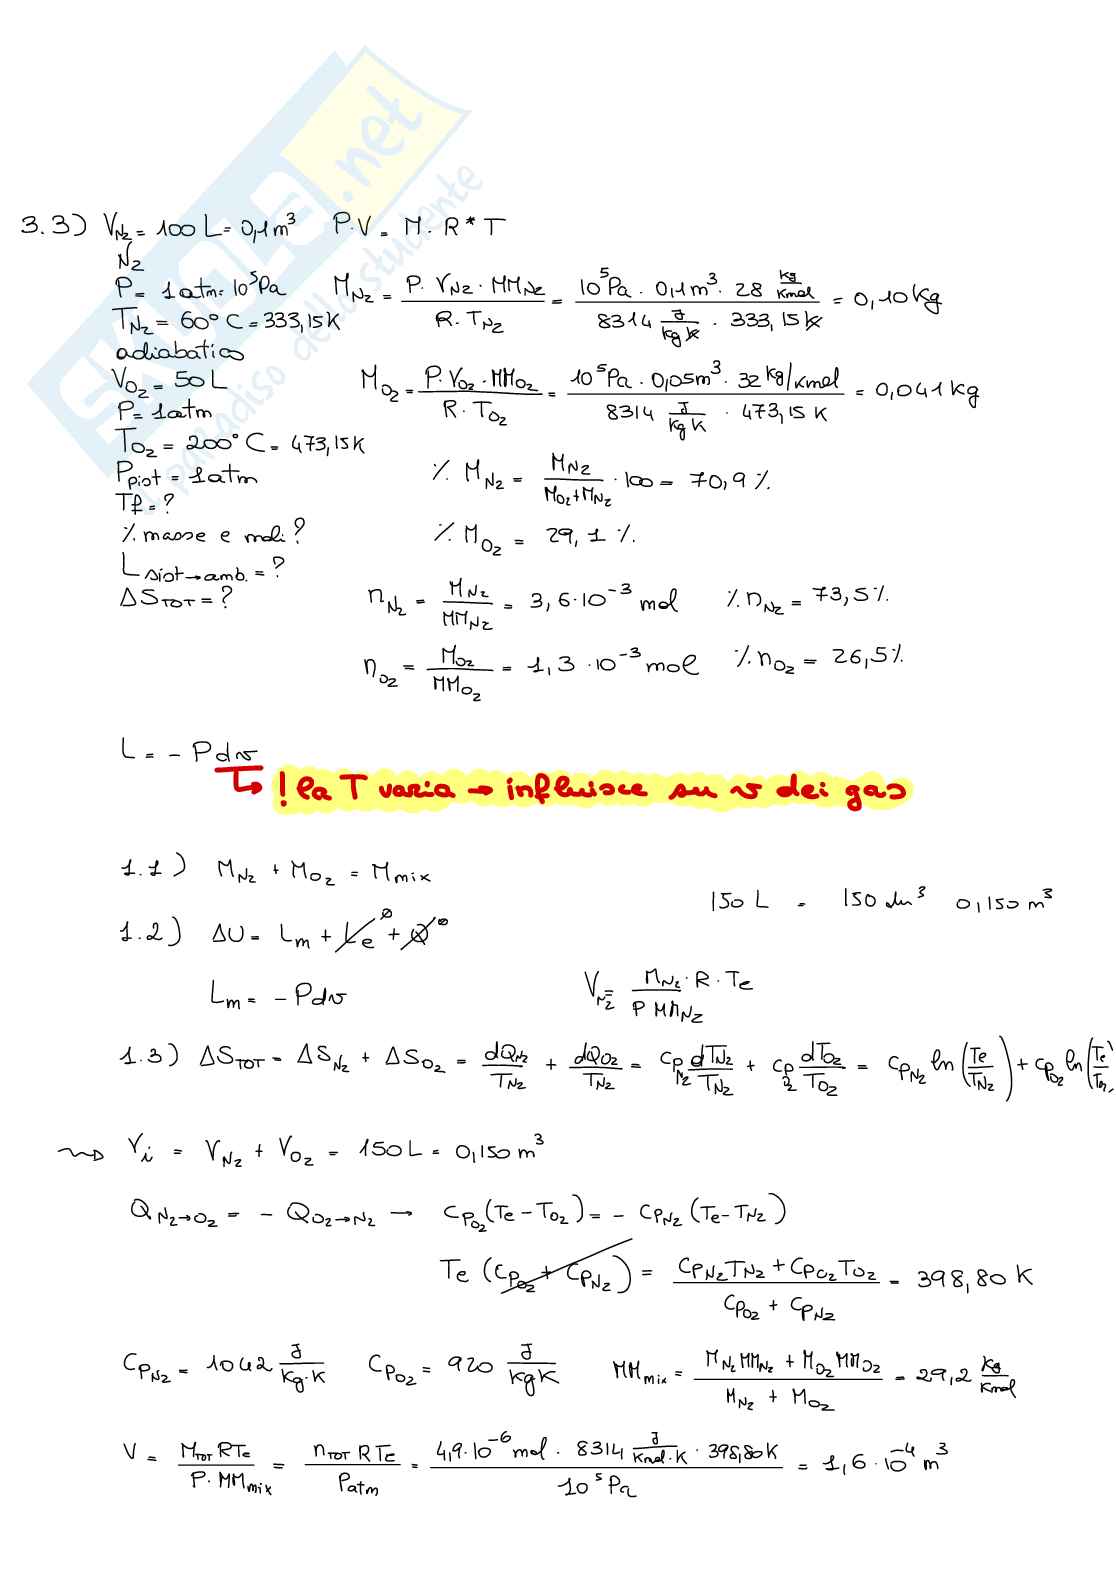 SKUOLA.net
il paradiso dello studente
3.3) V_N2 = 100 L = 0,1 m³    P·V = M·R*T
N2
P = 1 atm = 10⁵Pa    M_N2 = P·V_N2·MM_N2 / R·T_N2 = 10⁵Pa · 0,1 m³ · 28 kg/kmol / 8314 J/kg K · 333,15 K = 0,10 kg
T_N2 = 60°C = 333,15 K
adiabatico
V_O2 = 50 L    M_O2 = P·V_O2·MM_O2 / R·T_O2 = 10⁵Pa · 0,05 m³ · 32 kg/kmol / 8314 J/kg K · 473,15 K = 0,041 kg
P = 1 atm
T_O2 = 200°C = 473,15 K
P_pist = 1 atm    % M_N2 = M_N2 / M_O2+M_N2 · 100 = 70,9 %
Tf = ?
% masse e moli?    % M_O2 = 29,1 %
L sist→amb. = ?
ΔS_TOT = ?    n_N2 = M_N2 / MM_N2 = 3,6·10⁻³ mol    % n_N2 = 73,5%
n_O2 = M_O2 / MM_O2 = 1,3·10⁻³ mol    % n_O2 = 26,5%
L = - P dv
↳ ! la T varia → influisce su v dei gas
1.1) M_N2 + M_O2 = M_mix
150 L = 150 dm³  0,150 m³
1.2) ΔU = L_m + L_e⁰ + Q⁰
L_m = - P dv    V_N2 = M_N2·R·Te / P MM_N2
1.3) ΔS_TOT = ΔS_N2 + ΔS_O2 = dQ_N2/T_N2 + dQ_O2/T_N2 = cp_N2 dT_N2/T_N2 + cp_2 dT_O2/T_O2 = cp_N2 ln(Te/T_N2) + cp_O2 ln(Te/T
⇝ V_i = V_N2 + V_O2 = 150 L = 0,150 m³
Q_N2→O2 = - Q_O2→N2 → cp_O2 (Te - T_O2) = - cp_N2 (Te - T_N2)
Te (cp_O2 + cp_N2) = cp_N2 T_N2 + cp_O2 T_O2 / cp_O2 + cp_N2 = 398,80 K
cp_N2 = 1042 J/kg·K    cp_O2 = 920 J/kg K    MM_mix = M_N2 MM_N2 + M_O2 MM_O2 / M_N2 + M_O2 = 29,2 kg/kmol
V = M_TOT R Te / P·MM_mix = n_TOT R Te / P_atm = 4,9·10⁻⁶ mol · 8314 J/kmol·K · 398,80 K / 10⁵ Pa = 1,6·10⁻⁴ m³